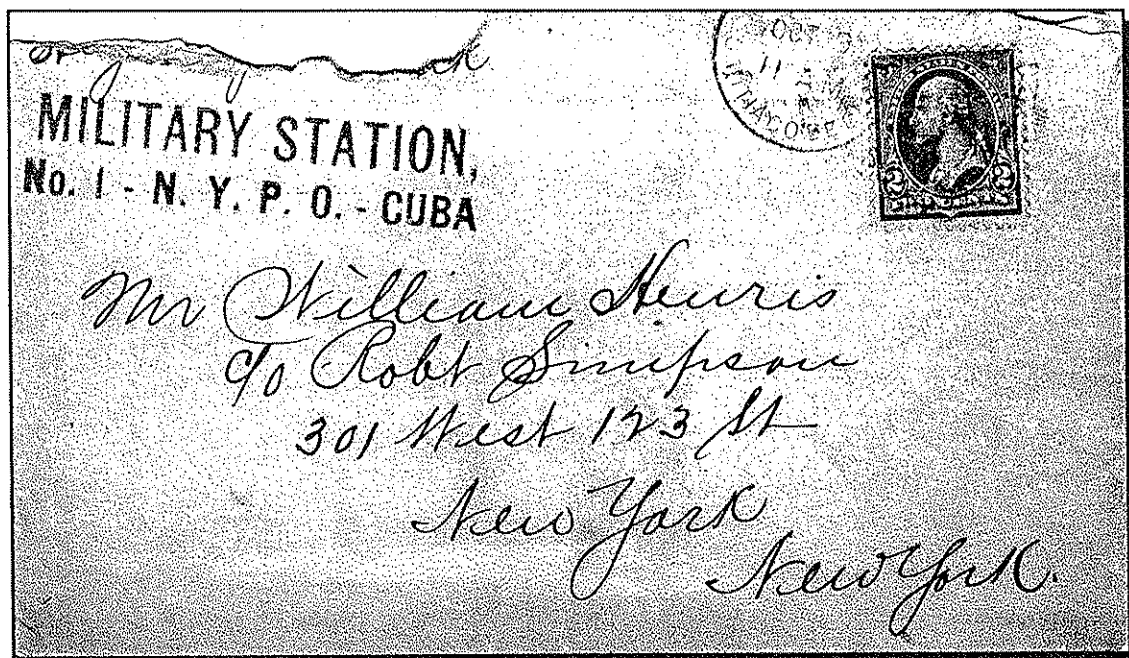 OCT
11
MILITARY STATION,
No. 1 - N. Y. P. O. - CUBA
2 2
Mr William Henris
c/o Robt Simpson
301 West 123 St
New York
New York.